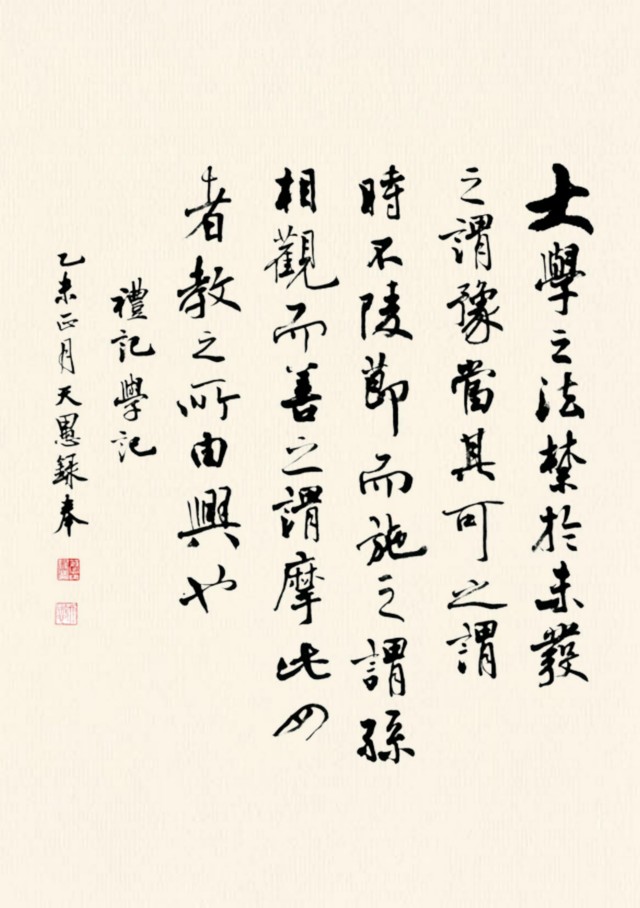 大學之法禁於未發
之謂豫當其可之謂
時不陵節而施之謂孫
相觀而善之謂摩此四
者教之所由興也
禮記學記
乙未正月天愚錄奉